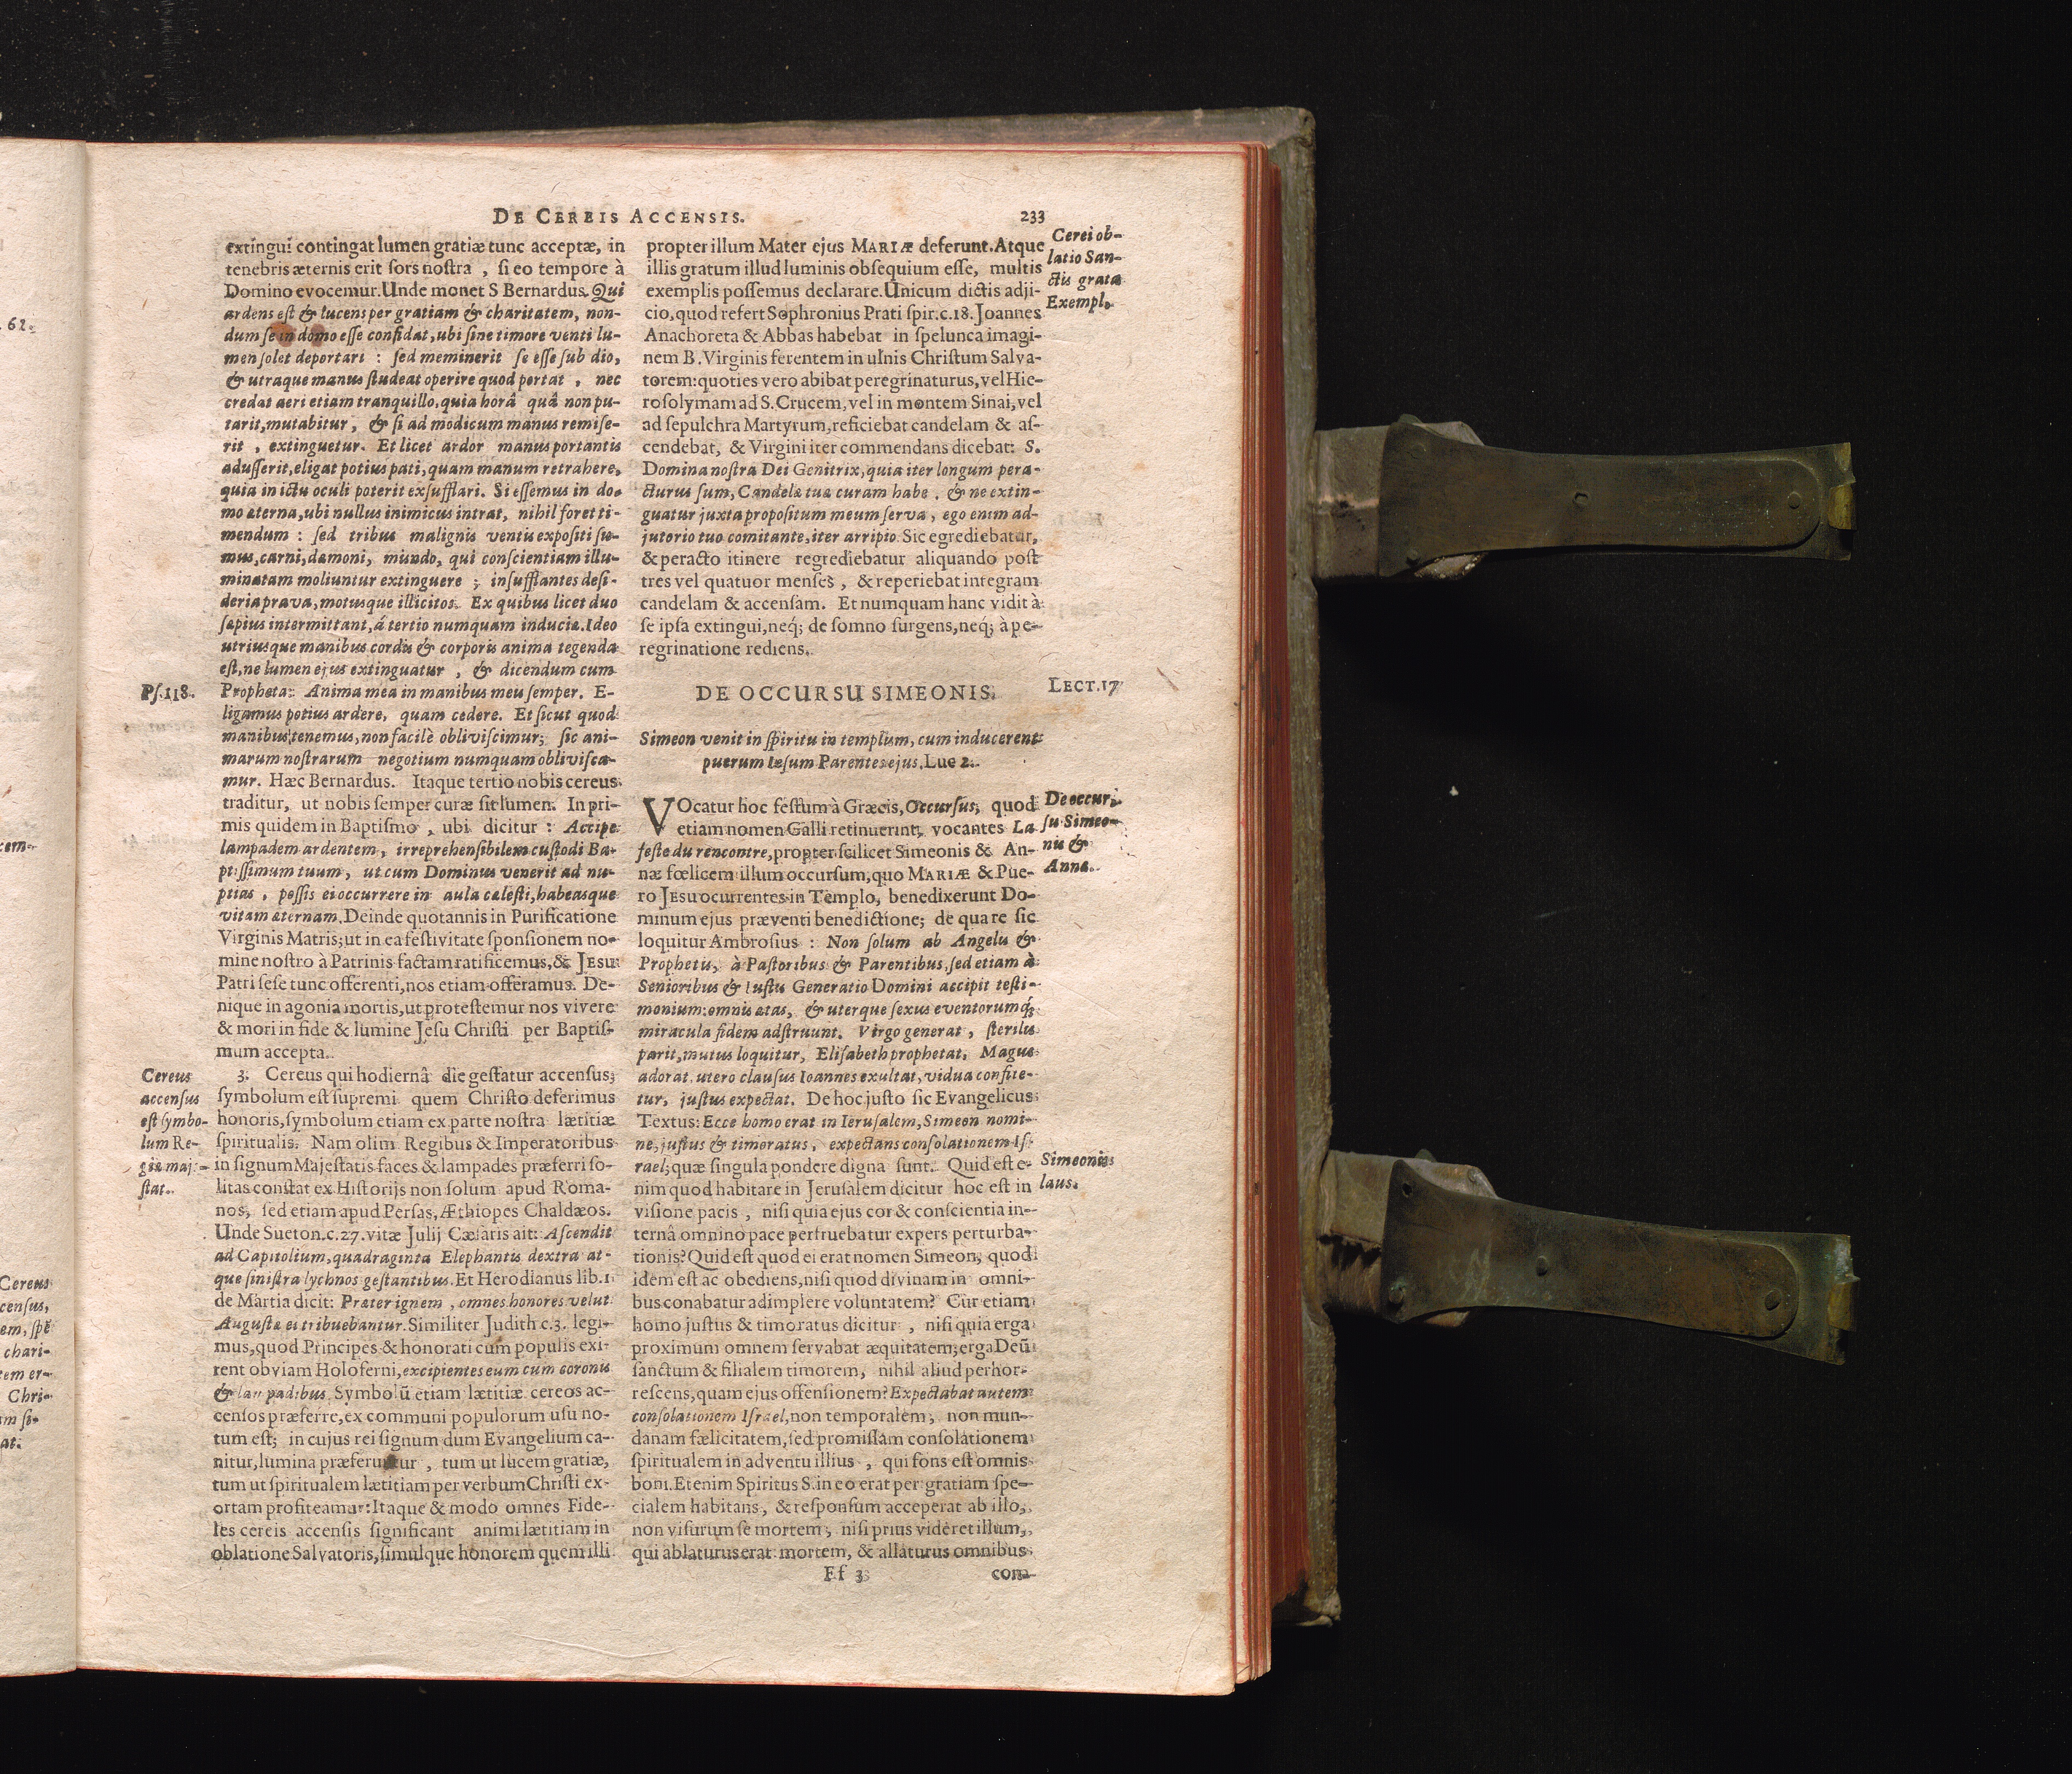 DE CEREIS ACCENSIS. 233
extingui contingat lumen gratiæ tunc acceptæ, in
tenebris æternis erit ſors noſtra , ſi eo tempore à
Domino evocemur. Unde monet S Bernardus. Qui
ardens eſt & lucens per gratiam & charitatem, non-
dum ſe in domo eſſe confidat, ubi ſine timore venti lu-
men ſolet deportari : ſed meminerit ſe eſſe ſub dio,
& utraque manus ſtudeat operire quod portat , nec
credat aeri etiam tranquillo, quia horâ quâ non pu-
tarit, mutabitur, & ſi ad modicum manus remiſe-
rit , extinguetur. Et licet ardor manus portantis
aduſſerit, eligat potius pati, quam manum retrahere,
quia in ictu oculi poterit exſufflari. Si eſſemus in do-
mo æterna, ubi nullus inimicus intrat, nihil foret ti-
mendum : ſed tribus malignis ventis expoſiti ſu-
mus, carni, dæmoni, mundo, qui conſcientiam illu-
minatam moliuntur extinguere ; inſufflantes deſi-
deria prava, motusque illicitos. Ex quibus licet duo
ſæpius intermittant, á tertio numquam induciæ. Ideo
utriusque manibus cordis & corporis anima tegenda
eſt, ne lumen ejus extinguatur , & dicendum cum
Pſ.118. Propheta: Anima mea in manibus meis ſemper. E-
ligamus potius ardere, quam cedere. Et ſicut quod
manibus tenemus, non facilè obliviſcimur; ſic ani-
marum noſtrarum negotium numquam obliviſca-
mur. Hæc Bernardus. Itaque tertio nobis cereus
traditur, ut nobis ſemper curæ ſit lumen. In pri-
mis quidem in Baptiſmo , ubi dicitur : Accipe
lampadem ardentem, irreprehenſibilem cuſtodi Ba-
ptiſſimum tuum, ut cum Dominus venerit ad nu-
ptias , poſſis ei occurrere in aula cæleſti, habeasque
vitam æternam. Deinde quotannis in Purificatione
Virginis Matris; ut in ea feſtivitate ſponſionem no-
mine noſtro à Patrinis factam ratificemus, & JESU
Patri ſeſe tunc offerenti, nos etiam offeramus. De-
nique in agonia mortis, ut proteſtemur nos vivere
& mori in fide & lumine Jeſu Chriſti per Baptiſ-
mum accepta.
Cereus
accenſus
eſt ſymbo-
lum Re-
giæ maj:-
ſtat.
3. Cereus qui hodiernâ die geſtatur accenſus,
ſymbolum eſt ſupremi quem Chriſto deferimus
honoris, ſymbolum etiam ex parte noſtra lætitiæ
ſpiritualis. Nam olim Regibus & Imperatoribus
in ſignum Majeſtatis faces & lampades præferri ſo-
litas conſtat ex Hiſtorijs non ſolum apud Roma-
nos, ſed etiam apud Perſas, Æthiopes Chaldæos.
Unde Sueton. c. 27. vitæ Julij Cæſaris ait: Aſcendit
ad Capitolium, quadraginta Elephantis dextra at-
que ſiniſtra lychnos geſtantibus. Et Herodianus lib. 1
de Martia dicit: Præter ignem , omnes honores velut
Auguſtæ ei tribuebantur. Similiter Judith c. 3. legi-
mus, quod Principes & honorati cum populis exi-
rent obviam Holoferni, excipientes eum cum coronis
& lampadibus. Symbolū etiam lætitiæ cereos ac-
cenſos præferre, ex communi populorum uſu no-
tum eſt; in cujus rei ſignum dum Evangelium ca-
nitur, lumina præferuntur , tum ut lucem gratiæ,
tum ut ſpiritualem lætitiam per verbum Chriſti ex-
ortam profiteamur: Itaque & modo omnes Fide-
les cereis accenſis ſignificant animi lætitiam in
oblatione Salvatoris, ſimulque honorem quem illi
propter illum Mater ejus MARIÆ deferunt. Atque
illis gratum illud luminis obſequium eſſe, multis
exemplis poſſemus declarare. Unicum dictis adji-
cio, quod refert Sophronius Prati ſpir. c. 18. Joannes
Anachoreta & Abbas habebat in ſpelunca imagi-
nem B. Virginis ferentem in ulnis Chriſtum Salva-
torem: quoties vero abibat peregrinaturus, vel Hie-
roſolymam ad S. Crucem, vel in montem Sinai, vel
ad ſepulchra Martyrum, reficiebat candelam & aſ-
cendebat, & Virgini iter commendans dicebat: S.
Domina noſtra Dei Genitrix, quia iter longum pera-
cturus ſum, Candelæ tuæ curam habe , & ne extin-
guatur juxta propoſitum meum ſerva , ego enim ad-
jutorio tuo comitante, iter arripio. Sic egrediebatur,
& peracto itinere regrediebatur aliquando poſt
tres vel quatuor menſes , & reperiebat integram
candelam & accenſam. Et numquam hanc vidit à
ſe ipſa extingui, neq́; de ſomno ſurgens, neq́; à pe-
regrinatione rediens.
Cerei ob-
latio San-
ctis grata
Exempl.
DE OCCURSU SIMEONIS. LECT. 17
Simeon venit in ſpiritu in templum, cum inducerent
puerum Ieſum Parentes ejus. Luc 2.
VOcatur hoc feſtum à Græcis, Occurſus, quod
etiam nomen Galli retinuerint, vocantes La
feſte du rencontre, propter ſcilicet Simeonis & An-
næ fœlicem illum occurſum, quo MARIÆ & Pue-
ro JESU ocurrentes in Templo, benedixerunt Do-
minum ejus præventi benedictione; de qua re ſic
loquitur Ambroſius : Non ſolum ab Angelis &
Prophetis, à Paſtoribus & Parentibus, ſed etiam à
Senioribus & Iuſtis Generatio Domini accipit teſti-
monium: omnis ætas, & uterque ſexus eventorumq́;
miracula fidem adſtruunt. Virgo generat , ſterilis
parit, mutus loquitur, Eliſabeth prophetat, Magus
adorat, utero clauſus Ioannes exultat, vidua confite-
tur, juſtus expectat. De hoc juſto ſic Evangelicus
Textus: Ecce homo erat in Ieruſalem, Simeon nomi-
ne, juſtus & timoratus, expectans conſolationem Iſ-
rael; quæ ſingula pondere digna ſunt. Quid eſt e-
nim quod habitare in Jeruſalem dicitur hoc eſt in
viſione pacis , niſi quia ejus cor & conſcientia in-
ternâ omnino pace perfruebatur expers perturba-
tionis? Quid eſt quod ei erat nomen Simeon, quod
idem eſt ac obediens, niſi quod divinam in omni-
bus conabatur adimplere voluntatem? Cur etiam
homo juſtus & timoratus dicitur , niſi quia erga
proximum omnem ſervabat æquitatem; erga Deū
ſanctum & filialem timorem, nihil aliud perhor-
reſcens, quam ejus offenſionem? Expectabat autem
conſolationem Iſrael, non temporalem, non mun-
danam fælicitatem, ſed promiſſam conſolationem
ſpiritualem in adventu illius , qui fons eſt omnis
boni. Etenim Spiritus S. in eo erat per gratiam ſpe-
cialem habitans, & reſponſum acceperat ab illo,
non viſurum ſe mortem, niſi prius videret illum,
qui ablaturus erat mortem, & allaturus omnibus
De occur-
ſu Simeo-
nis &
Annæ.
Simeonis
laus.
Ff 3 com-
62.
Cereus
cenſus,
em, ſpē
chari-
tem er-
Chri-
at.